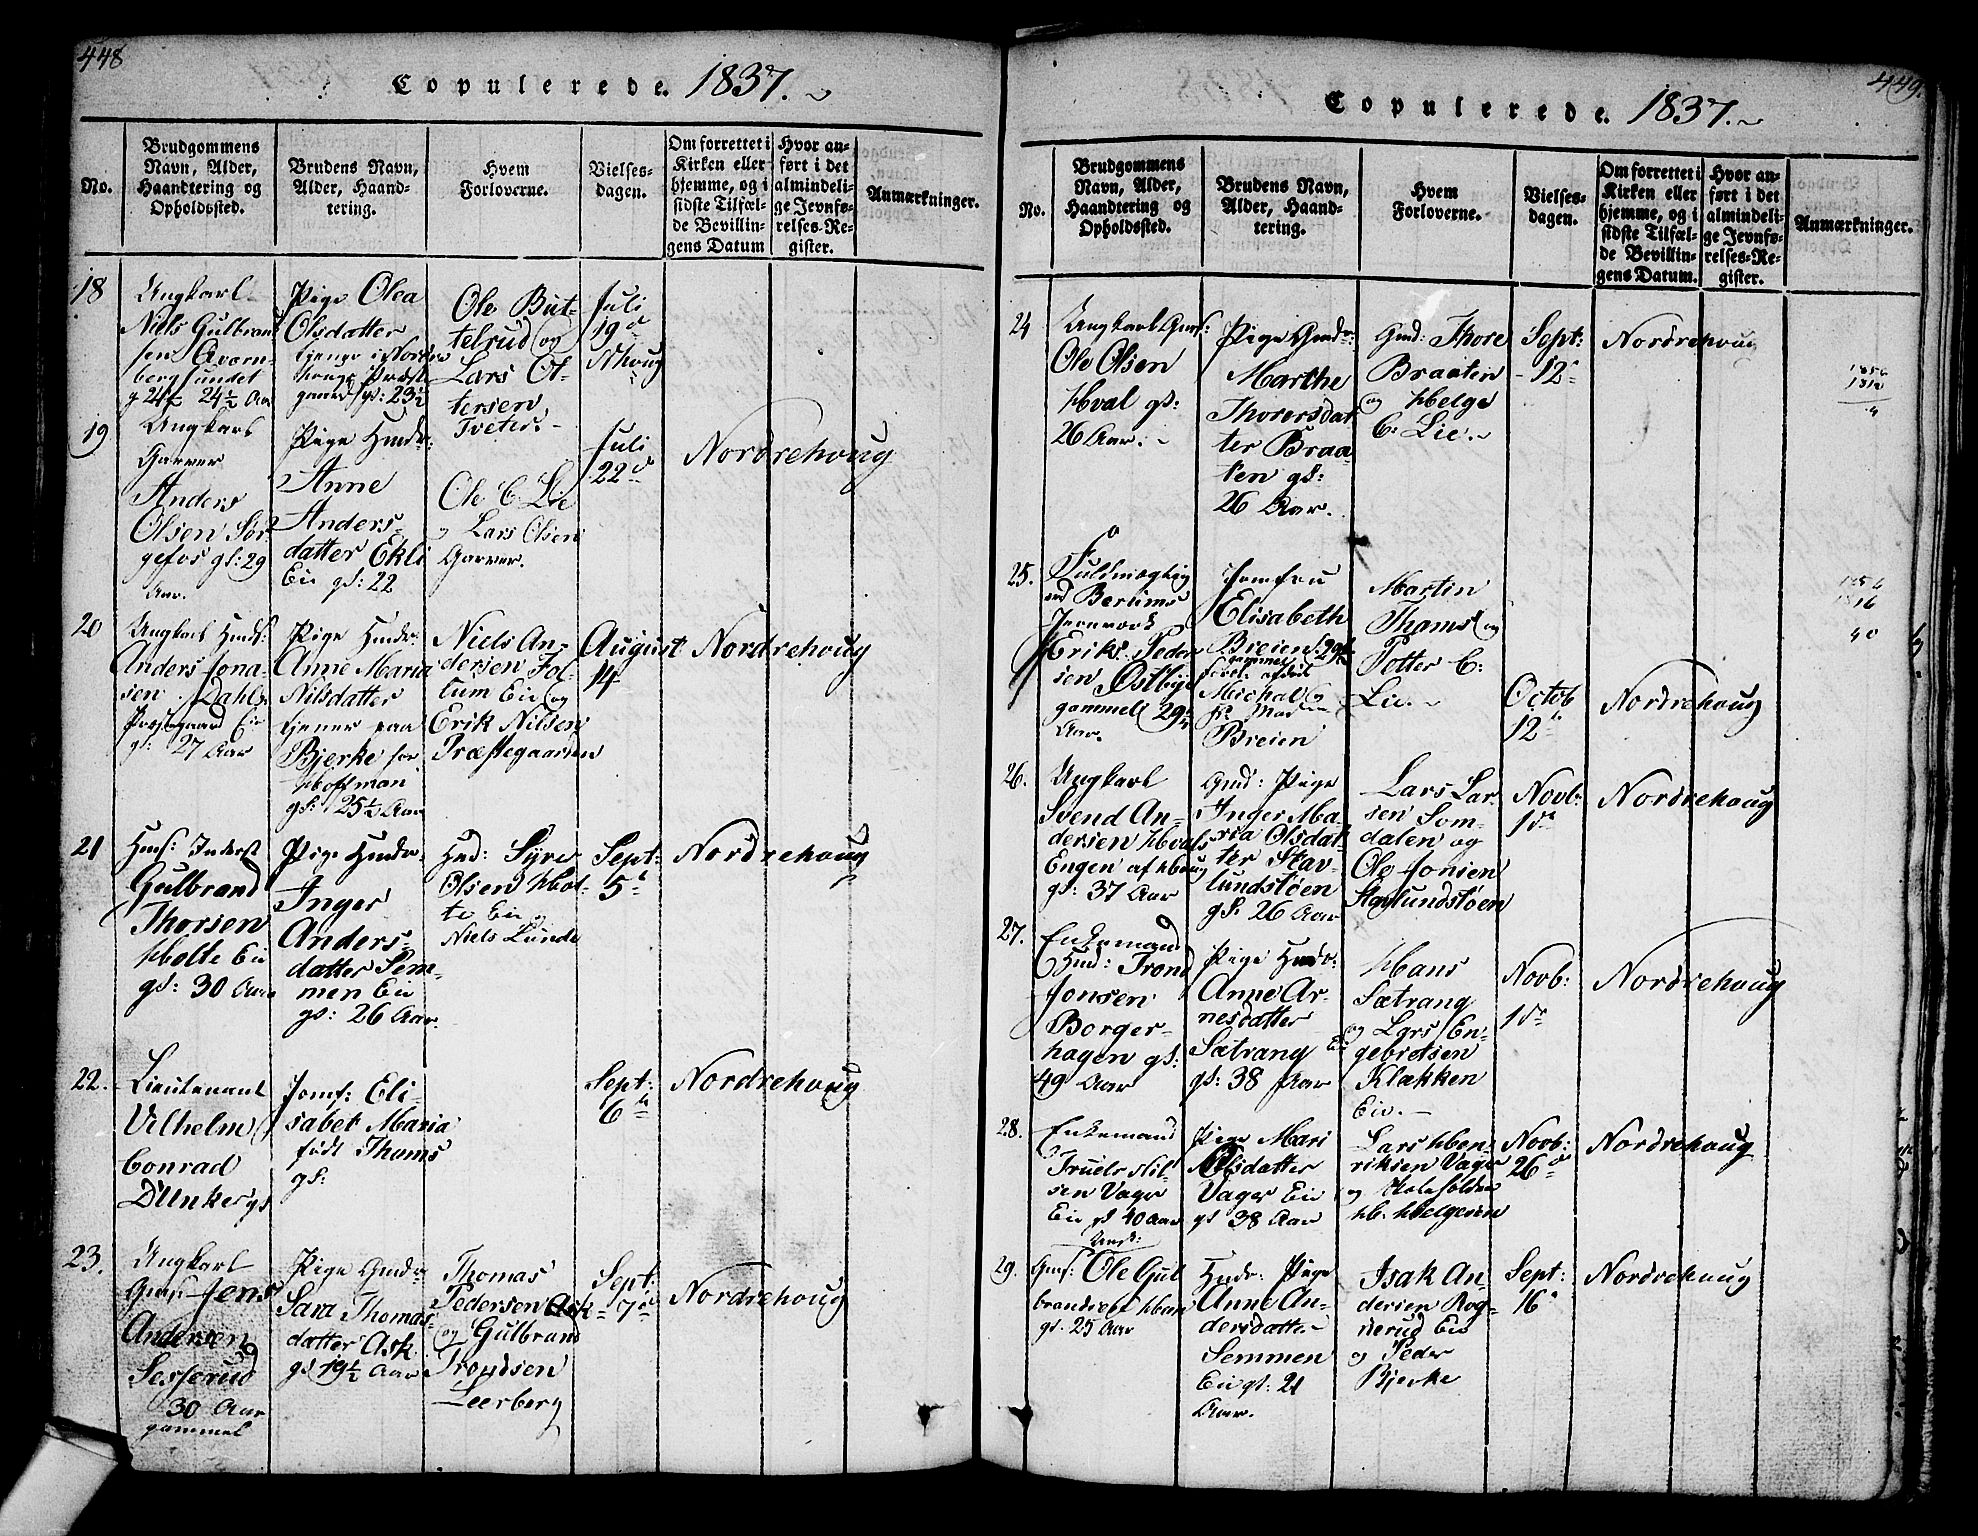 448
Copulerede. 1837.
No.
Brudgommens
Navn, Alder,
Haandtering og
Opholdssted.
Brudens Navn,
Alder, Haand-
tering.
Hvem
Forloverne.
Vielses-
dagen.
Om forrettet i
Kirken eller
hjemme, og i
sidste Tilfæl-
de Bevillin-
gens Datum
Hvor an-
ført i det
almindeli-
ge Jevnfø-
relses-Re-
gister.
Anmærkninger.
18
Ungkarl
Niels Gulbrand
sen
sundet
24½ Aar
Pige Olea
Olsdatter
tjener i Nordre
hougs Præste
gaard gl: 23½
Ole But-
telrud og
Lars Ot-
tersen
Tveter.
Juli
19de
Nhoug
19
Ungkarl
Garver
Anders
Olsen Sør-
gefos gl: 29
Aar.
Pige Huusdr:
Anne
Anders-
datter Ekli
Eie gl: 22
Ole C. Lie
og Lars Olsen
Garver.
Juli
22de
Nordrehoug
20
Ungkarl Huusf:
Anders Jona-
sen Dahls
Præstegaard Eie
gl: 27 Aar
Pige Huusdr:
Anne Maria
Nilsdatter
tjener paa
Bjerke for
Hoffman
gl: 25½ Aar
Niels An-
dersen Fol-
lum Eie og
Erik Nilsen
Præstegaarden
August
14
Nordrehoug
21
Huusf: Inderst
Gulbrand
Thorsen
Holte Eie
gl: 30 Aar
Pige Huusdr.
Inger
Anders-
datter Sem-
men Eie
gl: 26 Aar.
Huusd: Syver
Olsen Hol-
te Eie og
Niels Lunde
Sept:
5te
Nordrehoug
22.
Lieutenant
Vilhelm
Conrad
Dunker gl
Jomf: Eli-
sabet Maria
født Thams
gl:
Sept:
6te
Nordrehoug
23.
Ungkarl
Gmf. Jens
Andersen
Sesserud
30 Aar
gammel
Pige Gmdr
Sara Thomas-
datter Ask
gl 19½ Aar
Thomas
Pedersen Ask
og Gulbrand
Trondsen
Leerberg
Sept:
7de
Nordrehoug
449.
Copulerede. 1837.
No.
Brudgommens
Navn, Alder,
Haandtering og
Opholdssted.
Brudens Navn,
Alder, Haand-
tering.
Hvem
Forloverne.
Vielses-
dagen.
Om forrettet i
Kirken eller
hjemme, og i
sidste Tilfæl-
de Bevillin-
gens Datum.
Hvor an-
ført i det
almindeli-
ge Jevnfø-
relses-Re-
gister.
Anmærkninger.
24
Ungkarl Gmf:
Ole Olsen
Hval gl:
26 Aar.
Pige Gmdr:
Marthe
Thorersdat
ter Braa-
ten gl:
26 Aar.
Gmd: Thore
Braaten
og Helge
C: Lie.
Sept:
12te
Nordrehoug
1856
25.
Fuldmægtig
ved Berums
Jernværk
Erik Peder
sen Østbye
gammel 29½
Aar.
Jomfru
Elisabeth
Breien 29
gammel
Michal
Breien
Martin
Thams og
Potter C:
Lie.
Octob
12te
Nordrehoug
1856
1816
40
26.
Ungkarl
Svend An-
dersen Hvals
Engen af Houg
gl: 37 Aar
Gmd: Pige
Inger Ma-
ria Olsdat
ter Stav-
lundstøen
gl: 26 Aar
Lars Lar-
sen Som-
dalen og
Ole Jonsen
Stavlundstøen
Novb:
1ste
Nordrehoug
27.
Enkemand
Huusd: Trond
Jonsen
Borger-
hagen gl:
49 Aar
Pige Huusdr:
Anne Ar-
nesdatter
Sætrang Eie
gl: 38 Aar
Hans
Sætrang
og Lars En-
gebretsen
Klækken
Eie.
Novb:
1ste
Nordrehoug
28.
Enkemand
Truels Nil-
sen Vager
Eie gl 40 Aar
Pige Mari
Olsdatter
Vager Eie
gl 38 Aar
Lars Hen-
riksen Vager
og
H: Helgesen
Novb:
26de
Nordrehoug
29.
Ungk:
Gmf: Ole Gul
brandsen
gl. 25 Aar
Huusdr: Pige
Anne An-
dersdatter
Semmen
Eie gl: 21
Aar.
Isak An-
dersen Rog-
nerud Eie
og Peder
Bjerke
Sept:
16de
Nordrehoug